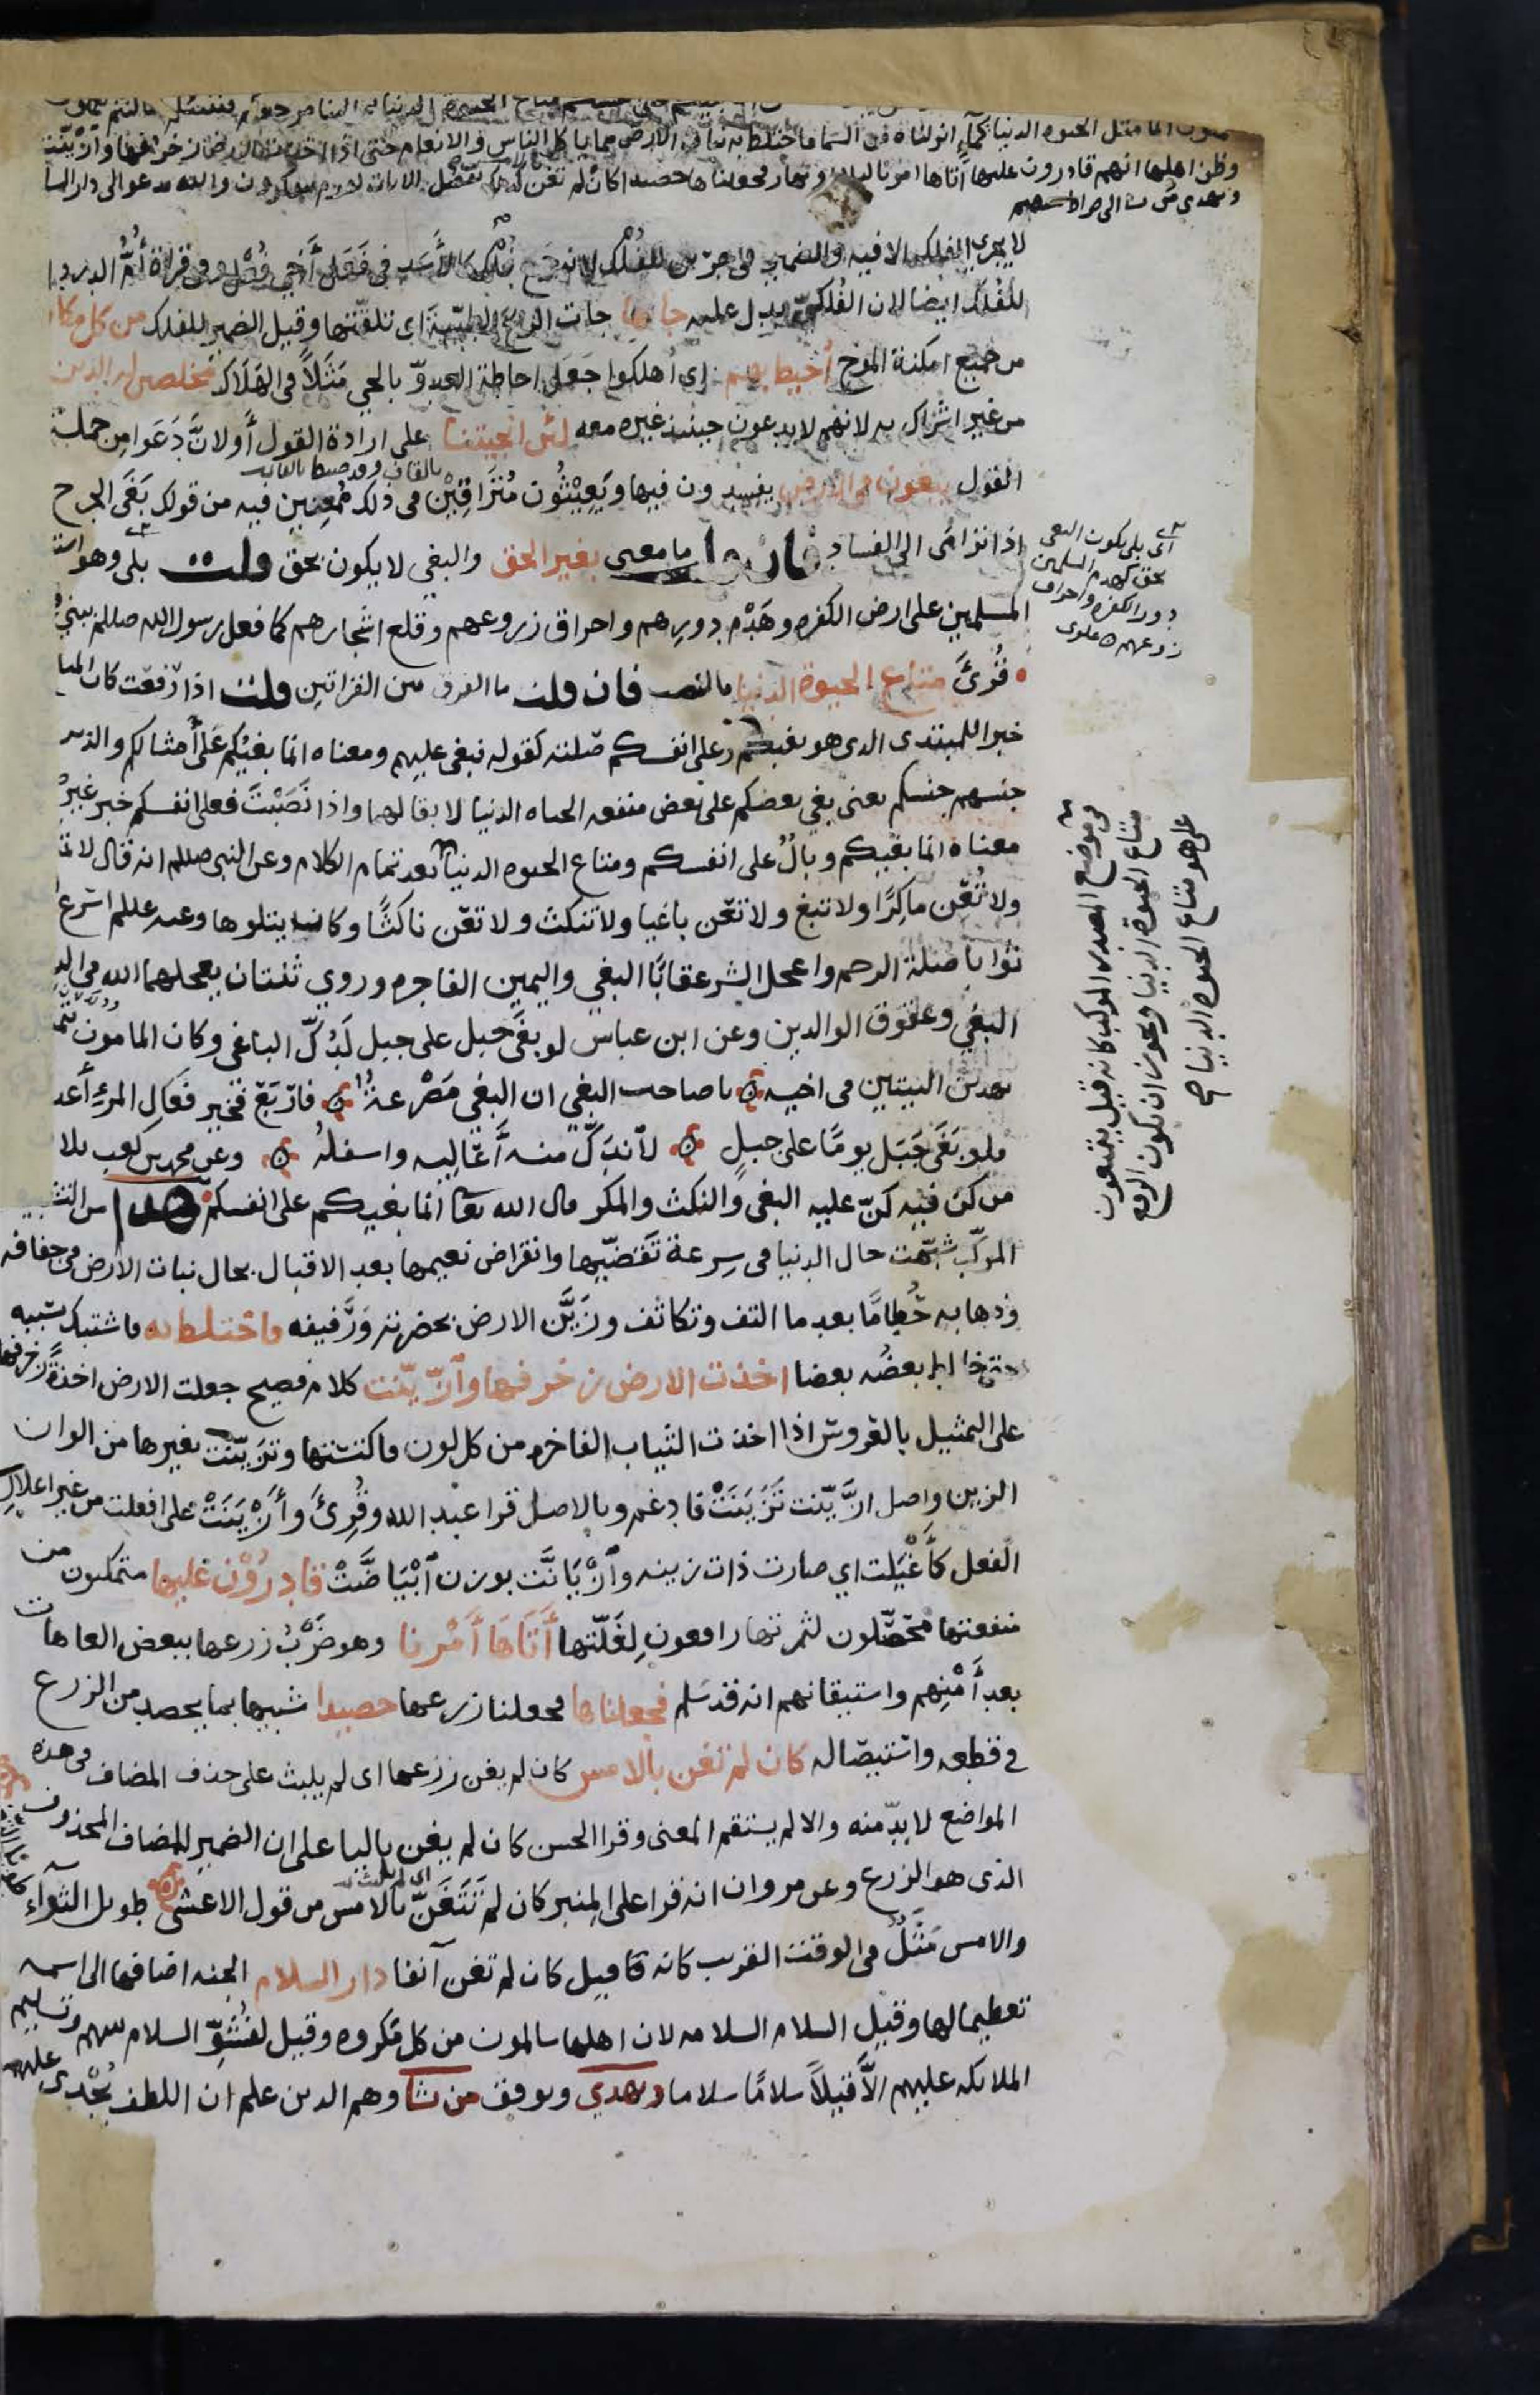 انما مثل الحيوه الدنيا كماء انزلناه من السما فاختلط به نبات الارض مما ياكل الناس والانعام حتى اذا اخذت الارض زخرفها وازّيّنت
وظن اهلها انهم قادرون عليها اتاها امرنا ليلا او نهارا فجعلناها حصيدا كان لم تغن نفصّل الايات لقوم يتفكرون والله يدعو الى دار السلا
ويهدي من يشا الى صراط
لا يجري الفلك الا فيه والضمير في جرين للفُلك لانه جمع فُلك كالأسد في فَعَل أخي فُعل وفي قراة أمّ الدردا
للفلك ايضا لان الفُلكيّ يدل عليه جاتها جات الريح الطيّبةَ اى تلقّتها وقيل الضمير للفلك من كل مكان
من جميع امكنة الموج أحيط بهم اي أهلكوا جَعَلَ احاطة العدوّ بالحي مَثَلاً في الهَلَاك مخلصين له الدين
من غير اشراك به لانهم لا يدعون حينئذ غيره معه لئن انجيتنا على ارادة القول أو لانَّ دَعَوا من جملة
القول يبغون في الارض يفسدون فيها ويَعِيْثُون مُتَرَاقِيْن في ذلك مُمعِنِين فيه من قولك بَغَى الجرح
اذا ترامى الى الفساد فان قلت ما معنى بغير الحق والبغي لا يكون بحق قلت بلى وهو است
المسلمين على ارض الكفره وهَدْم دورهم واحراق زروعهم وقلع اشجارهم كما فعل رسول الله صللم ببني
قُرئَ متاع الحيوة الدنيا بالنصب فان قلت ما الفرق بين القراتين قلت اذا رَفَعت كان المتاع
خبرا للمبتدى الدى هو بغيكم وعلى انفسكم صلته كقوله فبغى عليهم ومعناه انما بغيُكم على أمثالكم والذين
جنسهم جنسكم يعنى بغي بعضكم على بعض منفعه الحياه الدنيا لا بقا لها واذا نَصَبْتَ فعلى انفسكم خبر غيرُ
معناه انما بغيكم وبالٌ على انفسكم ومتاع الحيوه الدنيا بعد تمام الكلام وعن النبي صللم انه قال لا تمـ
ولا تُعِن ماكِرًا ولا تبغ ولا تعن باغيا ولا تنكث ولا تعن ناكثًا وكان يتلوها وعنه عللم اسرع
ثوابا صلة الرحم واعجل الشر عقابًا البغي واليمين الفاجره وروي ثنتان يعجلهما الله في الد
البغي وعقوق الوالدين وعن ابن عباس لو بغَى جبل على جبل لَدُكّ الباغي وكان المامون يتمـ
بهدين البيتين في اخيه يا صاحب البغي ان البغي مَصْرعةٌ فارْبَعْ فخير فَعَالِ المرءِ أعد
فلو بَغَى جَبَل يومًا على جبلٍ لاندكّ منه أَعَاليه واسفلُهُ وعن محمد بن كعب ثلا
من كنّ فيه كنّ عليه البغي والنكث والمكر قال الله تعا انما بغيكم على انفسكم هذا من التشبيه
المركّب شبّهت حال الدنيا في سرعة تَقَضّيها وانقراض نعيمها بعد الاقبال بحال نبات الارض في جفافه
وذهابه حُطامًا بعد ما التف وتكاثف وزَيَّن الارض بخضرته وَرَفيفه فاختلط به فاشتبك بسببه
حتى خالط بعضُه بعضا اخذت الارض زخرفها وازّيّنت كلام فصيح جعلت الارض اخذةً زخرفها
على التمثيل بالعروس اذا اخذت الثياب الفاخره من كل لون فاكتستها وتزيّنت بغيرها من الوان
الزين واصل ازّيّنت تزيّنتْ فادغم وبالاصل قرا عبد الله وقُرِئَ وأَزْيَنَتْ على افعلت من غير اعلال
الفعل كأَغْيَلت اي صارت ذات زينه وازْيَانَّت بوزن ابْيَاضَّتْ قادرُوْن عليها متمكنون من
منفعتها محصّلون لثمرتها رافعون لِغَلّتها أتَاهَا أمْرنا وهو ضَرْبُ زرعها ببعض العاهات
بعد أَمْنِهم واستيقانهم انه قد سَلِم فجعلناها فجعلنا زرعها حصيدا شبيها بما يحصد من الزرع
في قطعه واستيصاله كان لم تغن بالامس كان لم يغن زرعها اى لم يلبث على حذف المضاف في هذه
المواضع لا بدّ منه والا لم يستقم المعنى وقرا الحسن كان لم يغن باليا على ان الضمير للمضاف المحذوف
الذي هو الزرع وعن مروان انه قرا على المنبر كان لم تَتَغَنَّ بالامس من قول الاعشى طويل الثواء
والامس مَثَلٌ في الوقت القريب كانه قيل كان لم تغن آنفا دار السلام الجنه اضافها الى اسمه
تعظيما لها وقيل السلام السلامه لان اهلها سالمون من كل مكروه وقيل لفُشُوّ السلام بينهم وتسليم
الملائكه عليهم الّا قيلاً سلامًا سلاما ويهدي ويوفق من يشا وهم الدين علم ان اللطف يُجْدي عليهم
بالقاف وقد صحّ بالفاء
اى بلى يكون البغى
بحق كهدم المسلمين
دور الكفره واحراق
زروعهم علوى
في موضع المصدر الموكد كانه قيل يتمتعون
متاع الحيوة الدنيا ويجوز ان يكون الرفع
على هو متاع الحيوه الدنيا صح